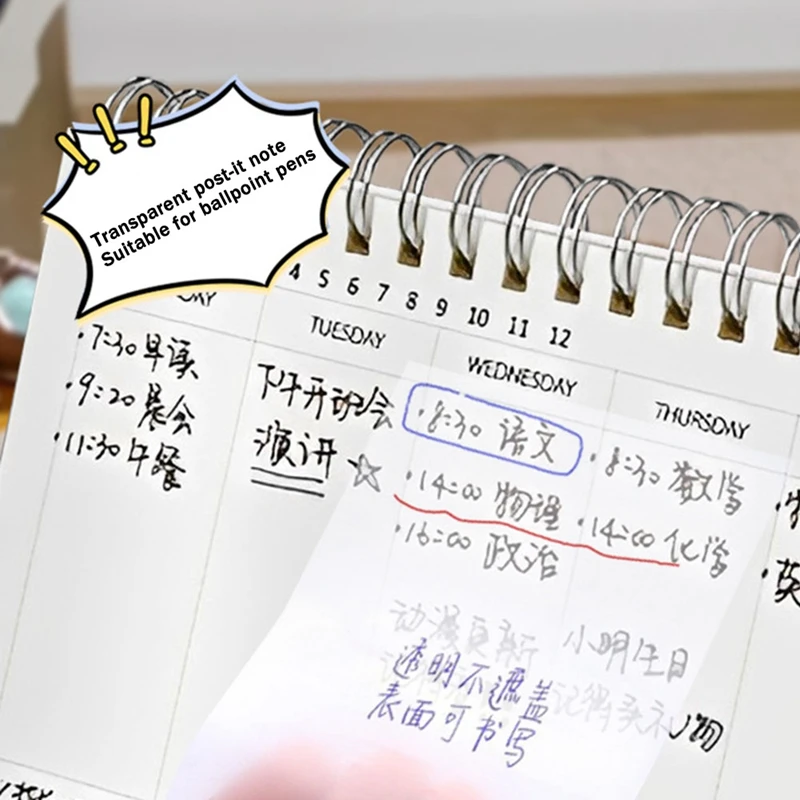 Transparent post-it note
Suitable for ballpoint pens
4 5 6 7 8 9 10 11 12
TUESDAY
WEDNESDAY
THURSDAY
·7:30 早读
·9:20 晨会
·11:30 午餐
下午开班会
演讲 ☆
·8:30 语文
·14:00 物理
·16:00 政治
·8:30 数学
·14:00 化学
动漫更新
小明生日
记得买礼物
透明不遮盖
表面可书写